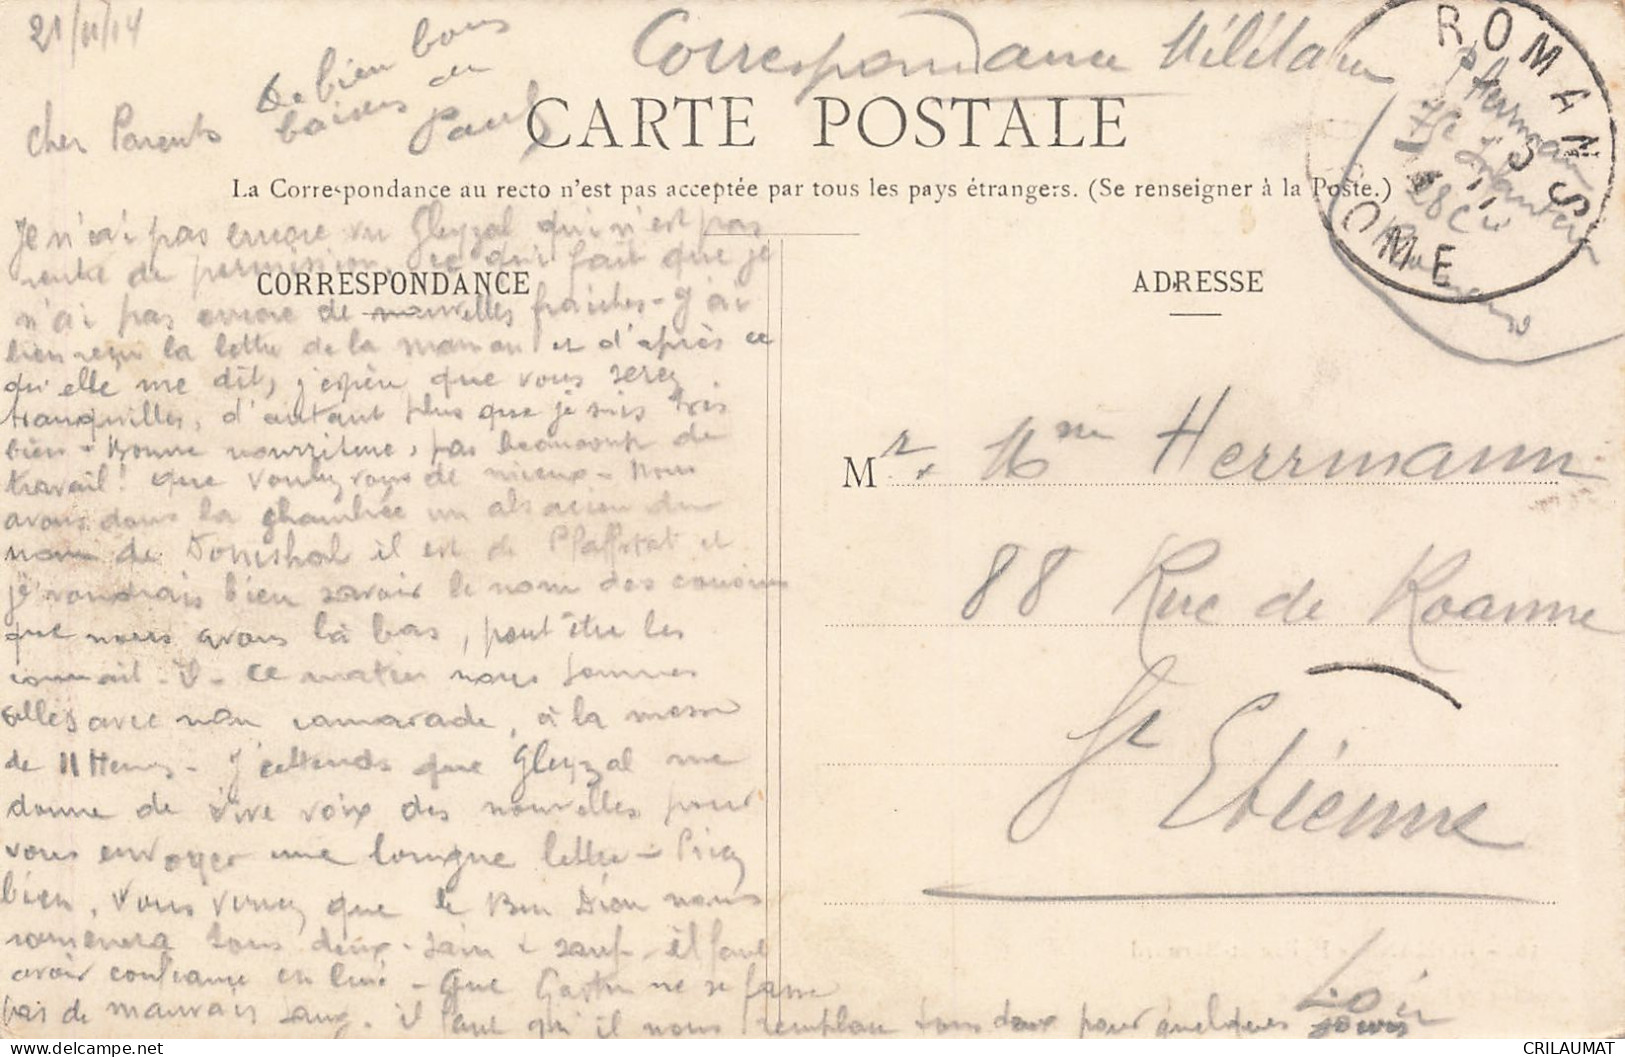 21/11/14
Correspondance Militaire
De bien bons
baisers de
Paul
Cher Parents
CARTE POSTALE
ROMANS
DROME
P Herrmann
75e d'Infanterie
28 Cie
Romans
La Correspondance au recto n'est pas acceptée par tous les pays étrangers. (Se renseigner à la Poste.)
CORRESPONDANCE
ADRESSE
Je n'ai pas encore vu Gleyzal qui n'est pas
rentré de permission, ce qui fait que je
n'ai pas encore de nouvelles fraîches - J'ai
bien reçu la lettre de la maman et d'après ce
qu'elle me dit, j'espère que vous serez
tranquilles, d'autant plus que je suis très
bien - Bonne nourriture, pas beaucoup de
travail! que voulez vous de mieux - Nous
avons dans la chambrée un alsacien du
nom de il est de Pfaffstat et
je voudrais bien savoir le nom des cousins
que nous avons là bas, peut être les
connait-il - Ce matin nous sommes
allés avec mon camarade, à la messe
de 11 Heures - J'attends que Gleyzal me
donne de vive voix des nouvelles pour
vous envoyer une longue lettre - Priez
bien, vous verrez que le Bon Dieu nous
ramenera tous deux sain & sauf - il faut
avoir confiance en lui - Que Gaston ne se fasse
pas de mauvais sang, il faut qu'il nous remplace tous deux pour quelques jours
Mr. Mme Herrmann
88 Rue de Roanne
St Etienne
Loire
CRILAUMAT